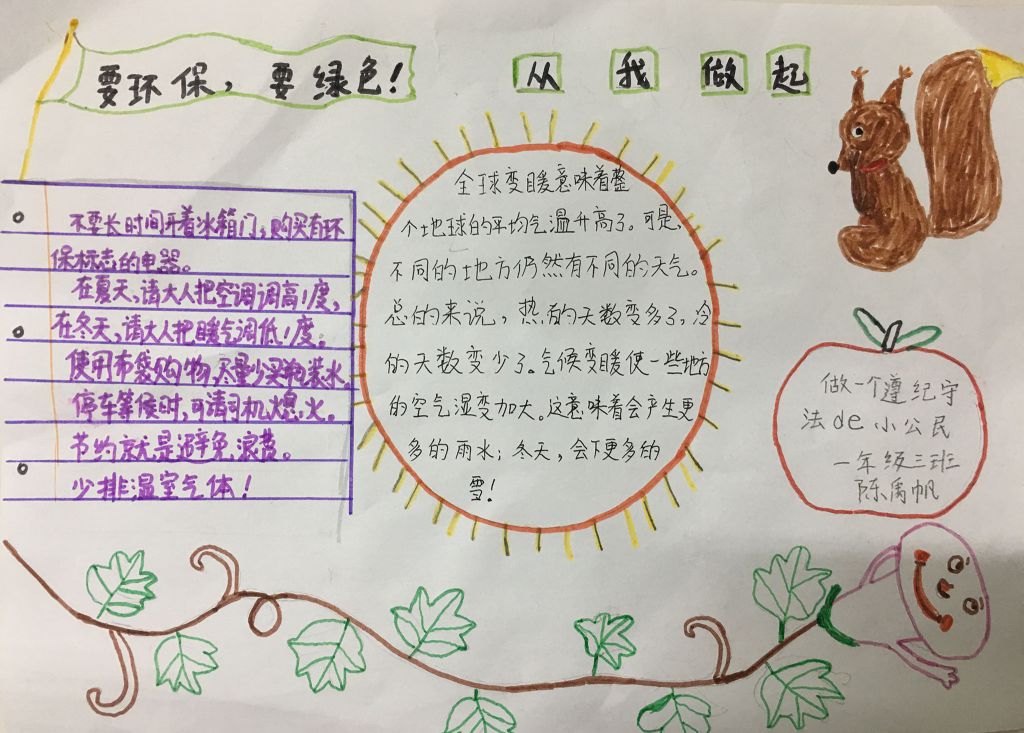 要环保，要绿色！
从我做起
不要长时间开着冰箱门；购买有环
保标志的电器。
在夏天，请大人把空调调高1度，
在冬天，请大人把暖气调低1度。
使用布袋购物，尽量少买瓶装水。
停车等候时，可请司机熄火。
节约就是避免浪费。
少排温室气体！
全球变暖意味着整
个地球的平均气温升高了。可是，
不同的地方仍然有不同的天气。
总的来说，热的天数变多了，冷
的天数变少了。气候变暖使一些地方
的空气湿变加大。这意味着会产生更
多的雨水；冬天，会下更多的
雪！
做一个遵纪守
法de小公民
一年级三班
陈禹帆